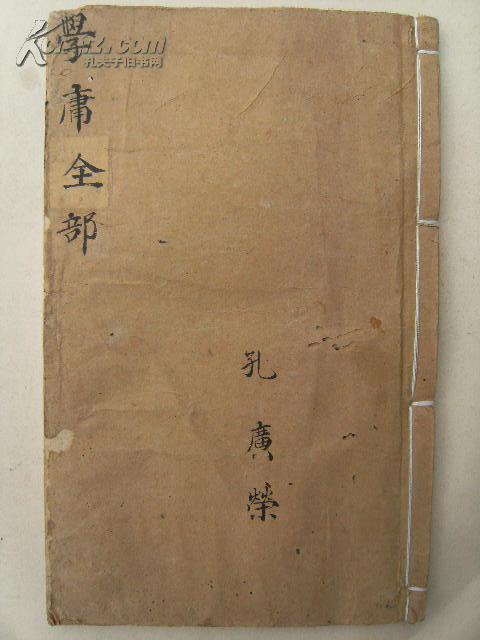 學庸全部
孔廣榮
Kongfz.com
孔夫子旧书网